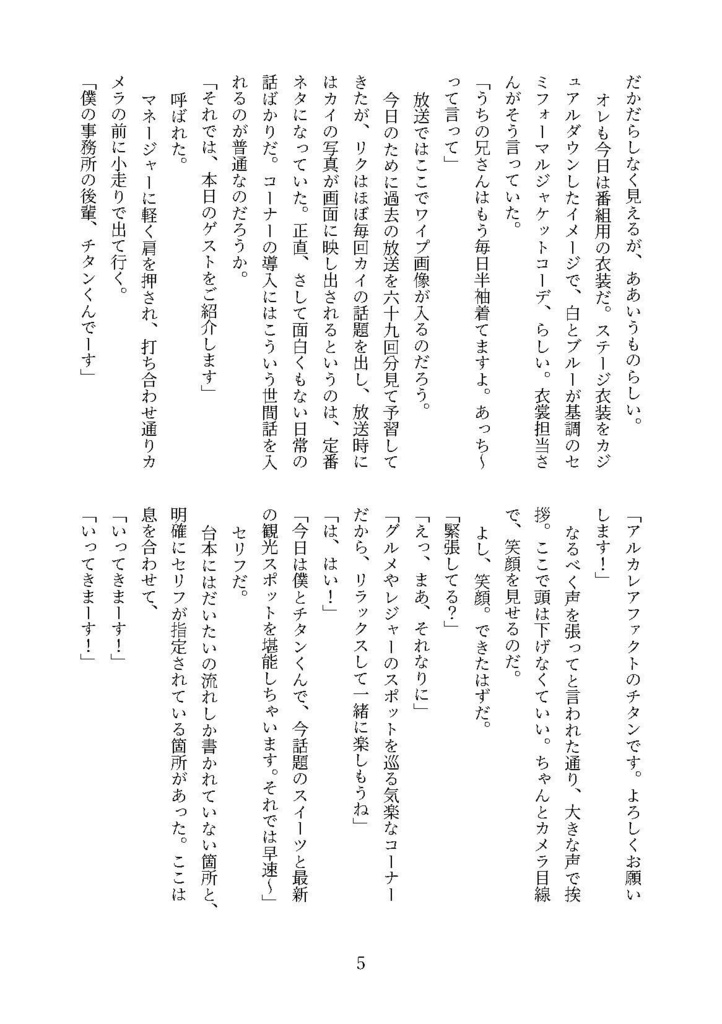 だかだらしなく見えるが、ああいうものらしい。
　オレも今日は番組用の衣装だ。ステージ衣装をカジ
ュアルダウンしたイメージで、白とブルーが基調のセ
ミフォーマルジャケットコーデ、らしい。衣裳担当さ
んがそう言っていた。
「うちの兄さんはもう毎日半袖着てますよ。あっち〜
って言って」
　放送ではここでワイプ画像が入るのだろう。
　今日のために過去の放送を六十九回分見て予習して
きたが、リクはほぼ毎回カイの話題を出し、放送時に
はカイの写真が画面に映し出されるというのは、定番
ネタになっていた。正直、さして面白くもない日常の
話ばかりだ。コーナーの導入にはこういう世間話を入
れるのが普通なのだろうか。
「それでは、本日のゲストをご紹介します」
　呼ばれた。
　マネージャーに軽く肩を押され、打ち合わせ通りカ
メラの前に小走りで出て行く。
「僕の事務所の後輩、チタンくんでーす」
「アルカレアファクトのチタンです。よろしくお願い
します！」
　なるべく声を張ってと言われた通り、大きな声で挨
拶。ここで頭は下げなくていい。ちゃんとカメラ目線
で、笑顔を見せるのだ。
　よし、笑顔。できたはずだ。
「緊張してる？」
「えっ、まあ、それなりに」
「グルメやレジャーのスポットを巡る気楽なコーナー
だから、リラックスして一緒に楽しもうね」
「は、はい！」
「今日は僕とチタンくんで、今話題のスイーツと最新
の観光スポットを堪能しちゃいます。それでは早速〜」
　セリフだ。
　台本にはだいたいの流れしか書かれていない箇所と、
明確にセリフが指定されている箇所があった。ここは
息を合わせて、
「いってきまーす！」
「いってきまーす！」
5